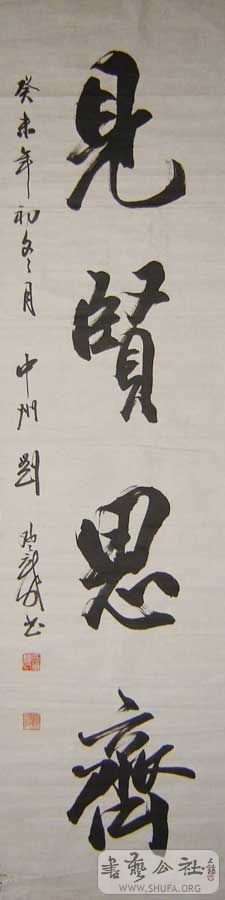 見賢思齊
癸未年初冬月 中州 劉
書藝公社
WWW.SHUFA.ORG